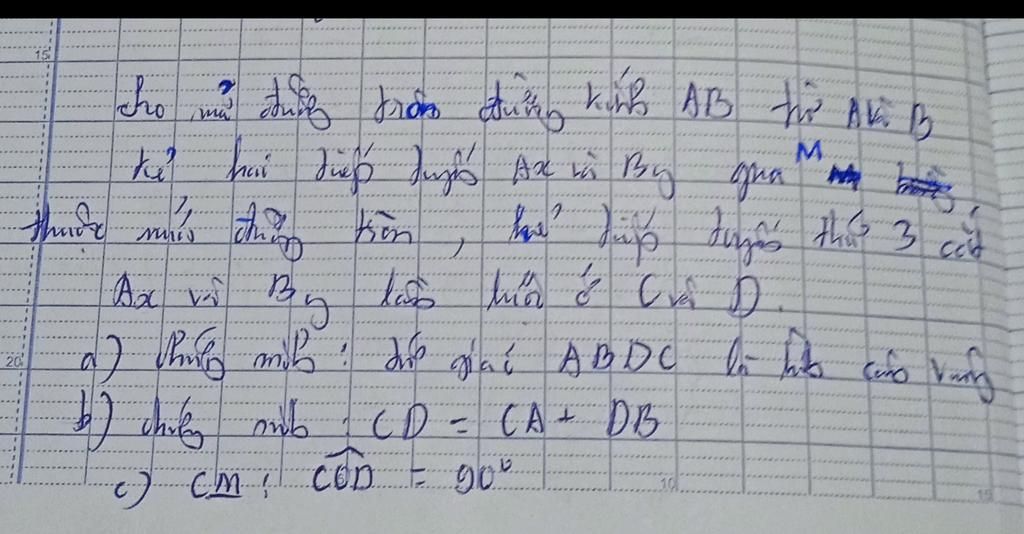 15
cho nửa đường tròn đường kính AB từ A và B
kẻ hai tiếp tuyến Ax và By qua M
thuộc nửa đường tròn, kẻ tiếp tuyến thứ 3 cắt
Ax và By lần lượt ở C và D.
20 a) Chứng minh: tứ giác ABDC là hình thang vuông
b) chứng minh: CD = CA + DB
c) CM: COD = 90°
10 15